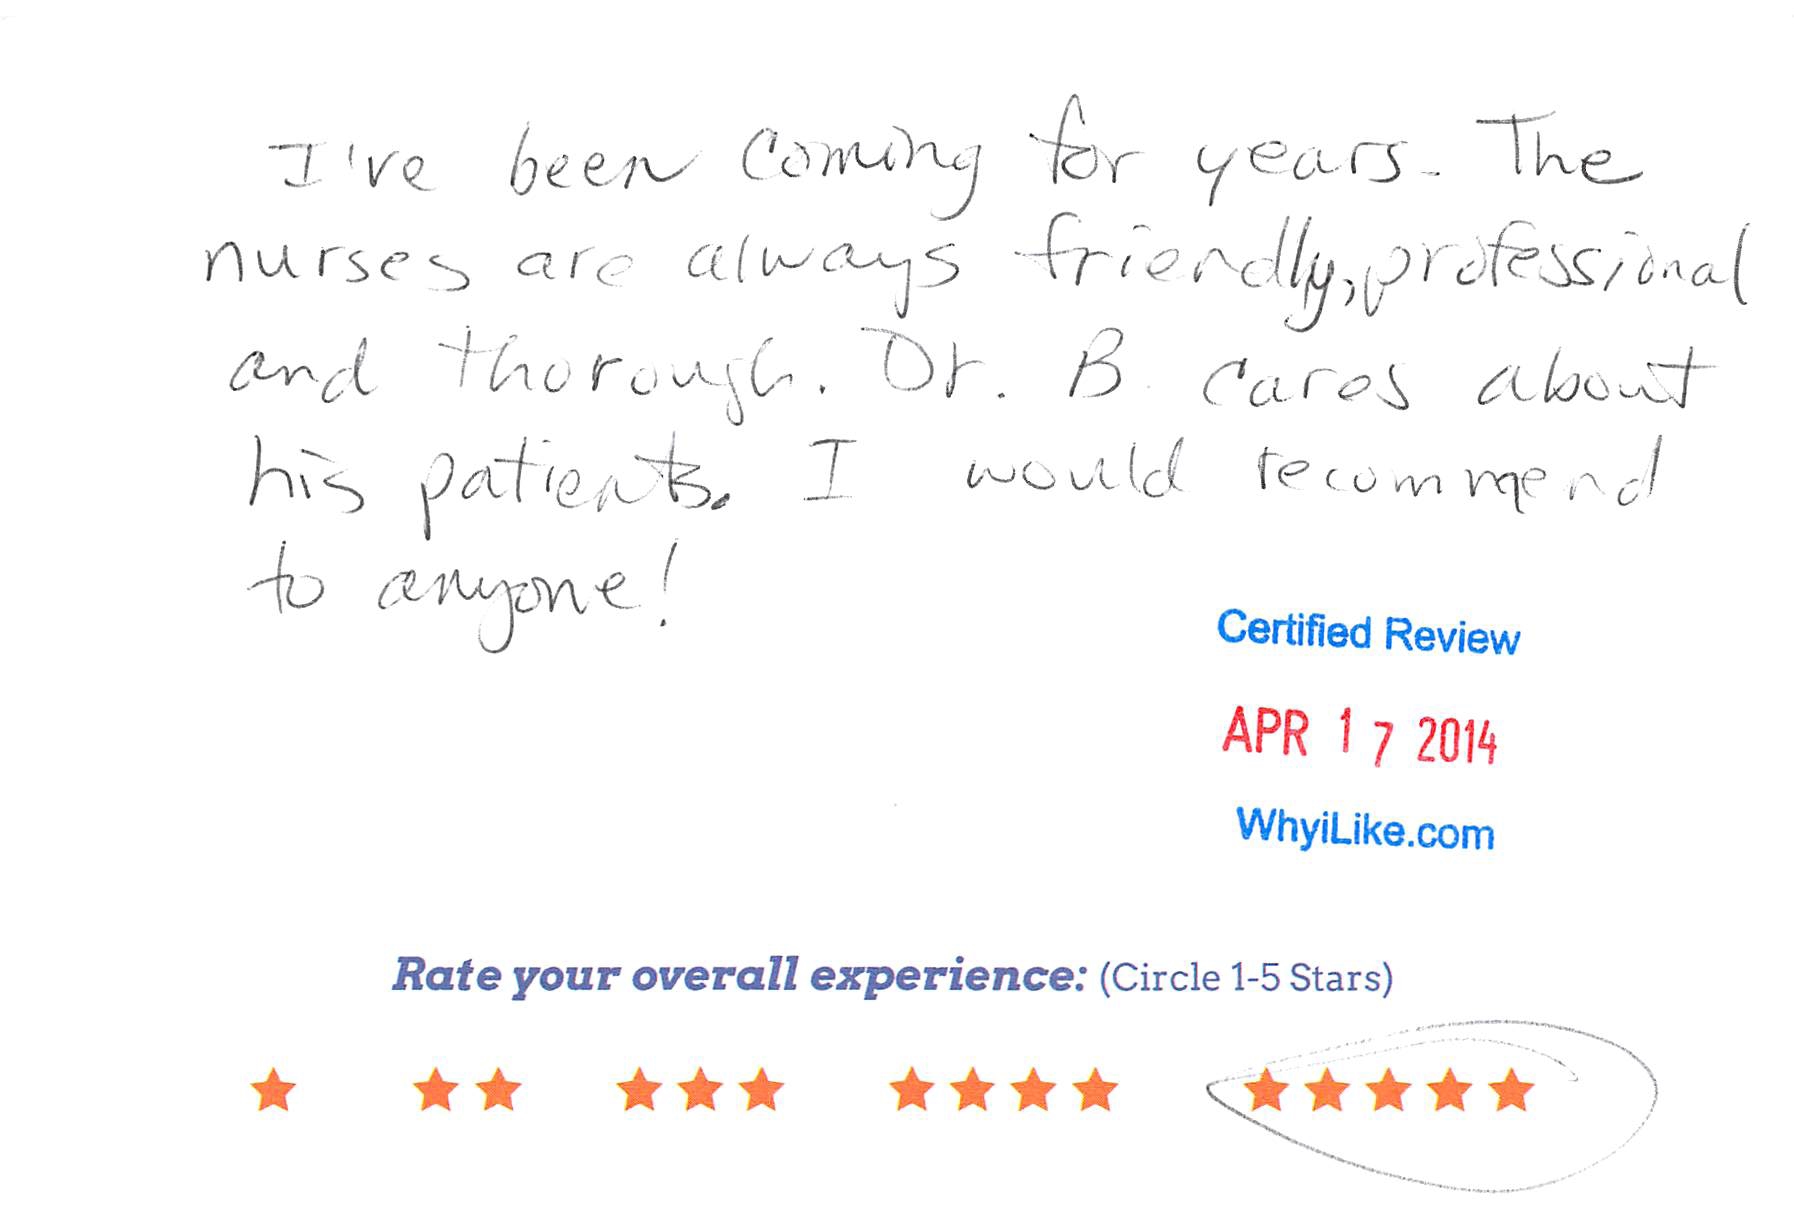 I've been coming for years. The
nurses are always friendly, professional
and thorough. Dr. B cares about
his patients. I would recommend
to anyone!
Certified Review
APR 17 2014
WhyiLike.com
Rate your overall experience: (Circle 1-5 Stars)